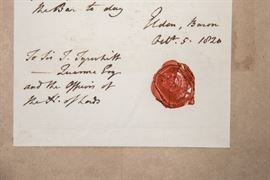 the Bar to day
Eldon, Baron
Octr. 5. 1820
To Sir T. Tyrwhitt
— Quarme Esq
and the Officers of
the H. of Lords